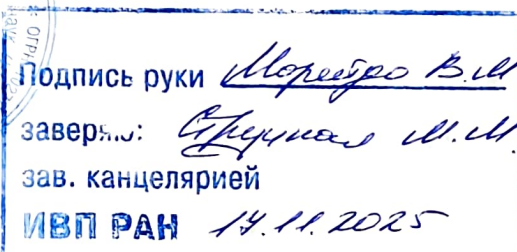 Подпись руки Морейдо В.М
заверяю: М.М.
зав. канцелярией
ИВП РАН 17.11.2025